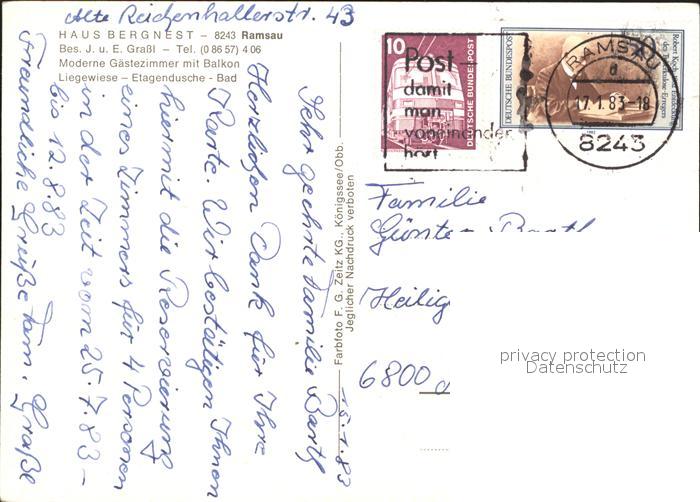 Alte Reichenhallerstr. 43
HAUS BERGNEST – 8243 Ramsau
Bes. J. u. E. Graßl – Tel. (0 86 57) 4 06
Moderne Gästezimmer mit Balkon
Liegewiese – Etagendusche – Bad
15.1.83
Sehr geehrte Familie Bartl
Herzlichen Dank für Ihre
Karte. Wir bestätigen Ihnen
hiermit die Reservierung
eines Zimmers für 4 Personen
in der Zeit vom 25.7.83 –
bis 12.8.83
Freundliche Grüße Fam. Graßl
Farbfoto F. G. Zeitz KG., Königssee/Obb.
Jeglicher Nachdruck verboten
10
DEUTSCHE BUNDESPOST
DEUTSCHE BUNDESPOST
Robert Koch
des Tuberkulose-Erregers
1982
Post
damit
man
voneinander
hört
RAMSAU
a
17.1.83-18
8243
Familie
Günte
Heilig
6800
privacy protection
Datenschutz